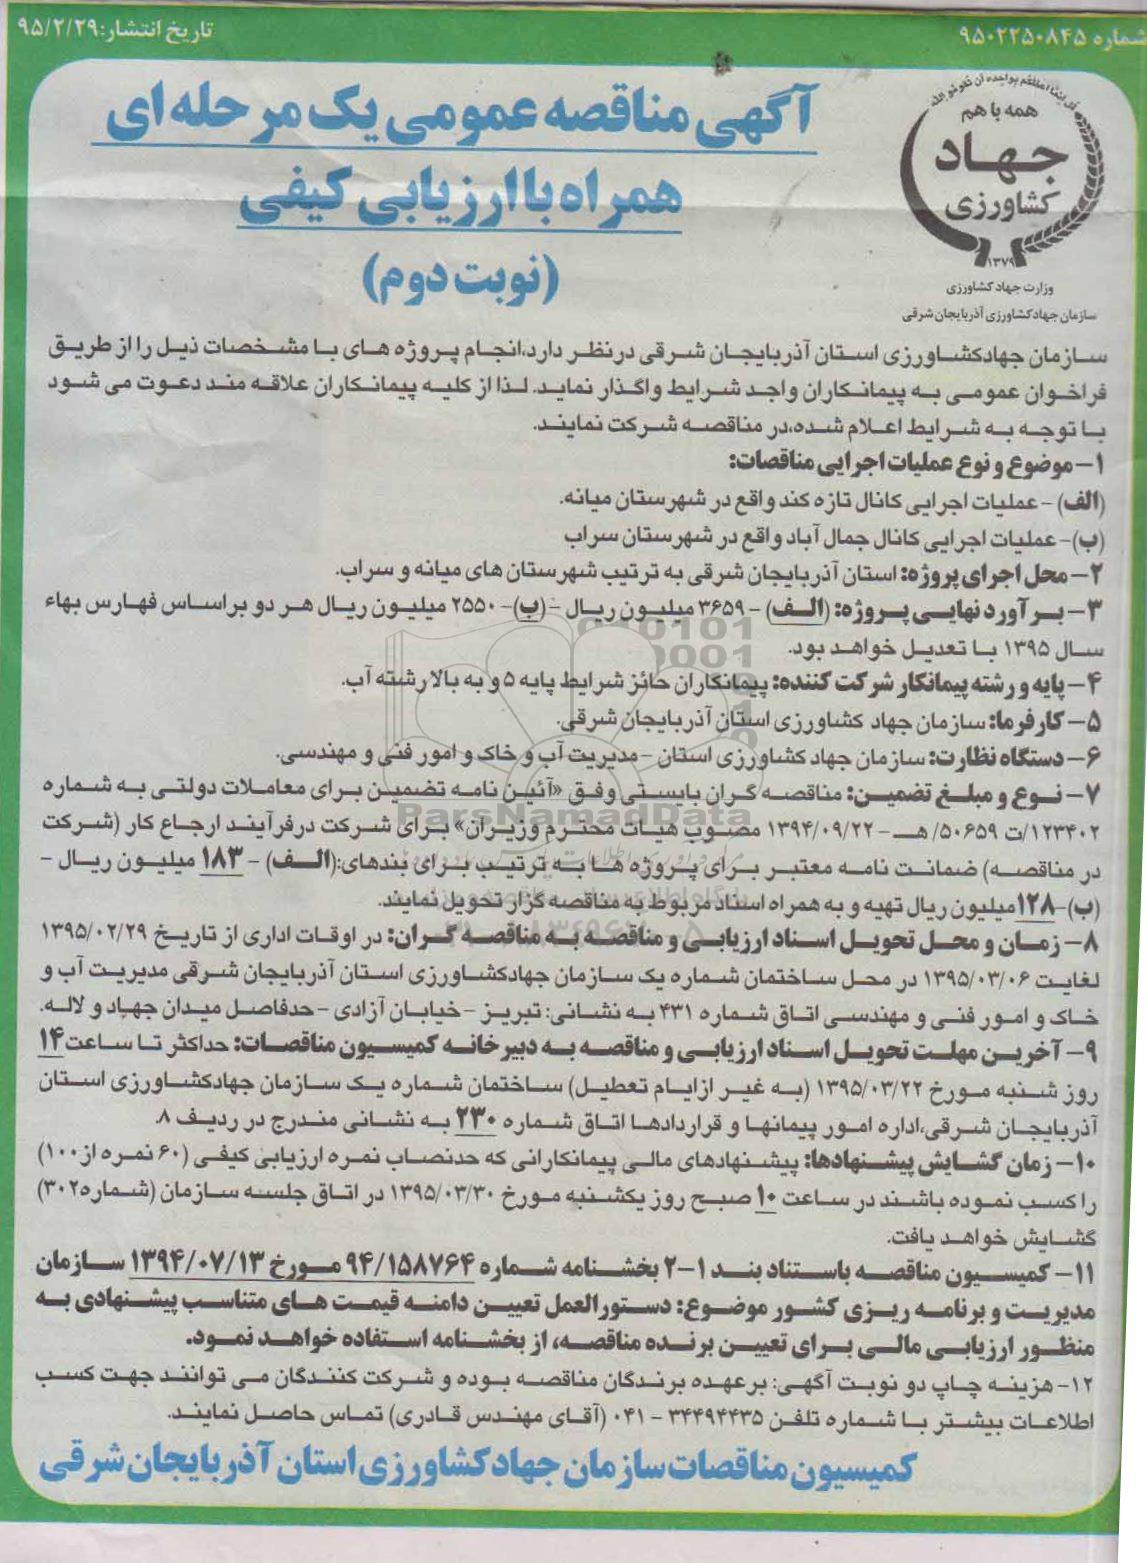 شماره ۹۵۰۲۲۵۰۸۴۵
تاریخ انتشار:۹۵/۲/۲۹
همه با هم
جهاد
کشاورزی
۱۳۷۹
وزارت جهاد کشاورزی
سازمان جهادکشاورزی آذربایجان شرقی
آگهی مناقصه عمومی یک مرحله ای
همراه با ارزیابی کیفی
(نوبت دوم)
سازمان جهادکشاورزی استان آذربایجان شرقی درنظر دارد،انجام پروژه های با مشخصات ذیل را از طریق
فراخوان عمومی به پیمانکاران واجد شرایط واگذار نماید. لذا از کلیه پیمانکاران علاقه مند دعوت می شود
با توجه به شرایط اعلام شده،در مناقصه شرکت نمایند.
۱- موضوع و نوع عملیات اجرایی مناقصات:
(الف) - عملیات اجرایی کانال تازه کند واقع در شهرستان میانه.
(ب)- عملیات اجرایی کانال جمال آباد واقع در شهرستان سراب
۲- محل اجرای پروژه: استان آذربایجان شرقی به ترتیب شهرستان های میانه و سراب.
۳- برآورد نهایی پروژه: (الف) - ۳۶۵۹ میلیون ریال - (ب)- ۲۵۵۰ میلیون ریال هر دو براساس فهارس بهاء
سال ۱۳۹۵ با تعدیل خواهد بود.
۴- پایه و رشته پیمانکار شرکت کننده: پیمانکاران حائز شرایط پایه ۵ و به بالا رشته آب.
۵- کارفرما: سازمان جهاد کشاورزی استان آذربایجان شرقی.
۶- دستگاه نظارت: سازمان جهاد کشاورزی استان - مدیریت آب و خاک و امور فنی و مهندسی.
۷- نوع و مبلغ تضمین: مناقصه گران بایستی وفق «آئین نامه تضمین برای معاملات دولتی به شماره
۱۲۳۴۰۲/ت ۵۰۶۵۹/ هـ - ۱۳۹۴/۰۹/۲۲ مصوب هیات محترم وزیران» برای شرکت درفرآیند ارجاع کار (شرکت
در مناقصه) ضمانت نامه معتبر برای پروژه ها به ترتیب برای بندهای:(الف) - ۱۸۳ میلیون ریال -
(ب)-۱۲۸میلیون ریال تهیه و به همراه اسناد مربوط به مناقصه گزار تحویل نمایند.
۸- زمان و محل تحویل اسناد ارزیابی و مناقصه به مناقصه گران: در اوقات اداری از تاریخ ۱۳۹۵/۰۲/۲۹
لغایت ۱۳۹۵/۰۳/۰۶ در محل ساختمان شماره یک سازمان جهادکشاورزی استان آذربایجان شرقی مدیریت آب و
خاک و امور فنی و مهندسی اتاق شماره ۴۳۱ به نشانی: تبریز - خیابان آزادی - حدفاصل میدان جهاد و لاله.
۹- آخرین مهلت تحویل اسناد ارزیابی و مناقصه به دبیرخانه کمیسیون مناقصات: حداکثر تا ساعت ۱۴
روز شنبه مورخ ۱۳۹۵/۰۳/۲۲ (به غیر از ایام تعطیل) ساختمان شماره یک سازمان جهادکشاورزی استان
آذربایجان شرقی،اداره امور پیمانها و قراردادها اتاق شماره ۲۳۰ به نشانی مندرج در ردیف ۸.
۱۰- زمان گشایش پیشنهادها: پیشنهادهای مالی پیمانکارانی که حدنصاب نمره ارزیابی کیفی (۶۰ نمره از ۱۰۰)
را کسب نموده باشند در ساعت ۱۰ صبح روز یکشنبه مورخ ۱۳۹۵/۰۳/۳۰ در اتاق جلسه سازمان (شماره۳۰۲)
گشایش خواهد یافت.
۱۱- کمیسیون مناقصه باستناد بند ۱-۲ بخشنامه شماره ۹۴/۱۵۸۷۶۴ مورخ ۱۳۹۴/۰۷/۱۳ سازمان
مدیریت و برنامه ریزی کشور موضوع: دستورالعمل تعیین دامنه قیمت های متناسب پیشنهادی به
منظور ارزیابی مالی برای تعیین برنده مناقصه، از بخشنامه استفاده خواهد نمود.
۱۲- هزینه چاپ دو نوبت آگهی: برعهده برندگان مناقصه بوده و شرکت کنندگان می توانند جهت کسب
اطلاعات بیشتر با شماره تلفن ۳۴۴۹۴۴۳۵ - ۰۴۱ (آقای مهندس قادری) تماس حاصل نمایند.
کمیسیون مناقصات سازمان جهاد کشاورزی استان آذربایجان شرقی
ParsNamadData